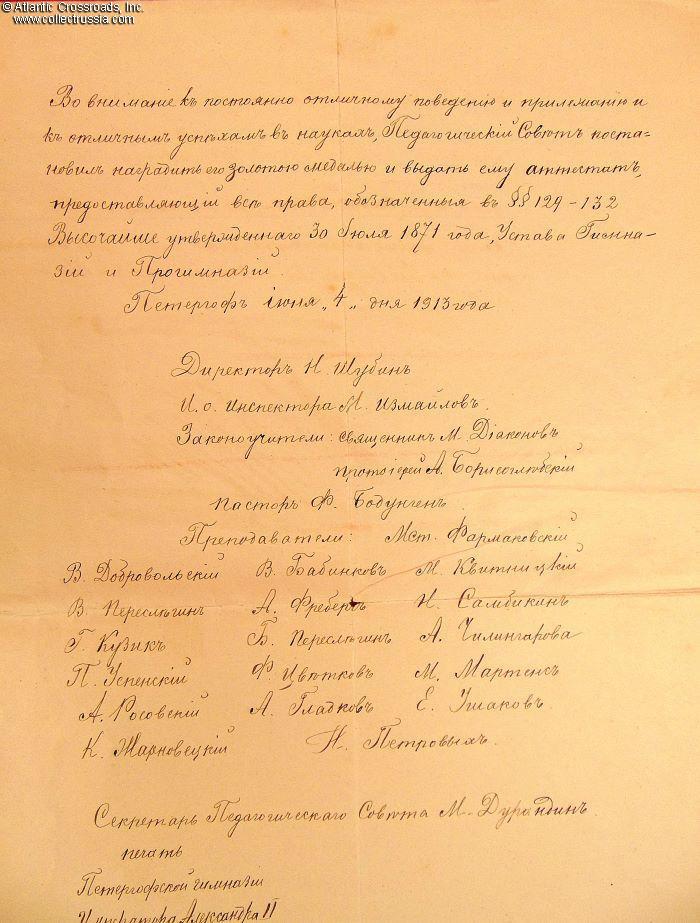 © Atlantic Crossroads, Inc.
www.collectrussia.com
Во вниманіе къ постоянно отличному поведенію и прилежанію и
къ отличнымъ успѣхамъ въ наукахъ, Педагогическій Совѣтъ поста-
новилъ наградить его золотою медалью и выдать ему аттестатъ,
предоставляющій всѣ права, обозначенныя въ §§ 129-132
Высочайше утвержденнаго 30 Іюля 1871 года, Устава Гимна-
зій и Прогимназій.
Петергофъ Іюня „4„ дня 1913 года
Директоръ Н. Шубинъ
И. о. инспектора М. Измайловъ.
Законоучители: священникъ М. Діаконовъ
протоіерей А. Борисоглѣбскій
пасторъ Ф. Бодунгенъ.
Преподаватели: Мст. Фармаковскій
В. Добровольскій В. Бабинковъ М. Квитницкій
В. Переслѣгинъ А. Фребергъ Н. Самбикинъ
Г. Кузикъ Б. Переслѣгинъ А. Чилингарова
П. Успенскій Ф. Цвѣтковъ М. Мартенсъ
А. Росовскій А. Гладковъ Е. Ушаковъ.
К. Жарновецкій Н. Петровыхъ.
Секретарь Педагогическаго Совѣта М. Дурандинъ.
печать
Петергофской гимназіи
Императора Александра II